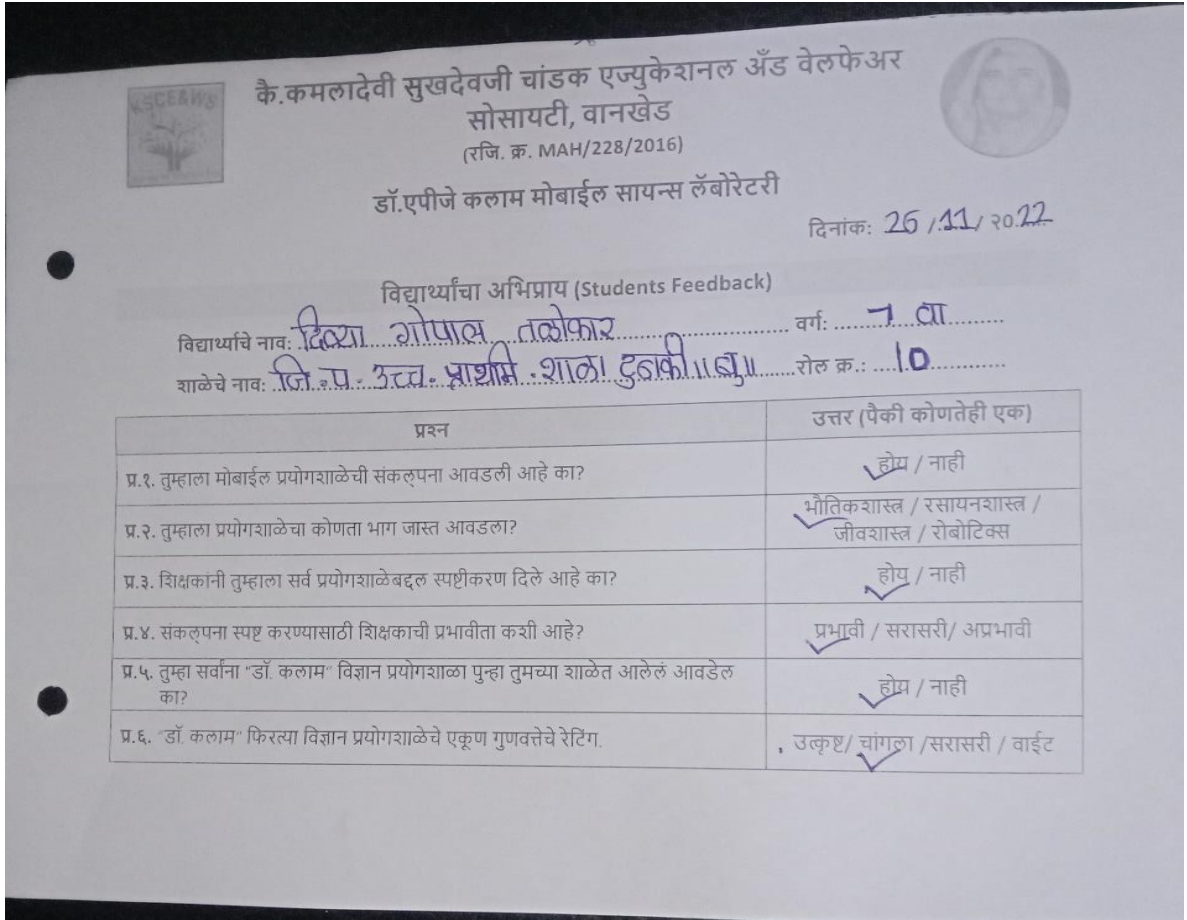 KSCE&WS
कै.कमलादेवी सुखदेवजी चांडक एज्युकेशनल अँड वेलफेअर
सोसायटी, वानखेड
(रजि. क्र. MAH/228/2016)
डॉ.एपीजे कलाम मोबाईल सायन्स लॅबोरेटरी
दिनांक: 26/11/२०22
विद्यार्थ्यांचा अभिप्राय (Students Feedback)
विद्यार्थ्याचे नाव: दिव्या गोपाल तळोकार वर्ग: 7 वा
शाळेचे नाव: जि.प. उच्च. प्राथमि.शाळा टुनकी॥बु॥ रोल क्र.: 10
प्रश्न उत्तर (पैकी कोणतेही एक)
प्र.१. तुम्हाला मोबाईल प्रयोगशाळेची संकल्पना आवडली आहे का? होय / नाही
प्र.२. तुम्हाला प्रयोगशाळेचा कोणता भाग जास्त आवडला? भौतिकशास्त्र / रसायनशास्त्र /
जीवशास्त्र / रोबोटिक्स
प्र.३. शिक्षकांनी तुम्हाला सर्व प्रयोगशाळेबद्दल स्पष्टीकरण दिले आहे का? होय / नाही
प्र.४. संकल्पना स्पष्ट करण्यासाठी शिक्षकाची प्रभावीता कशी आहे? प्रभावी / सरासरी/ अप्रभावी
प्र.५. तुम्हा सर्वांना "डॉ. कलाम" विज्ञान प्रयोगशाळा पुन्हा तुमच्या शाळेत आलेलं आवडेल
का? होय / नाही
प्र.६. "डॉ. कलाम" फिरत्या विज्ञान प्रयोगशाळेचे एकूण गुणवत्तेचे रेटिंग. उत्कृष्ट/ चांगला /सरासरी / वाईट